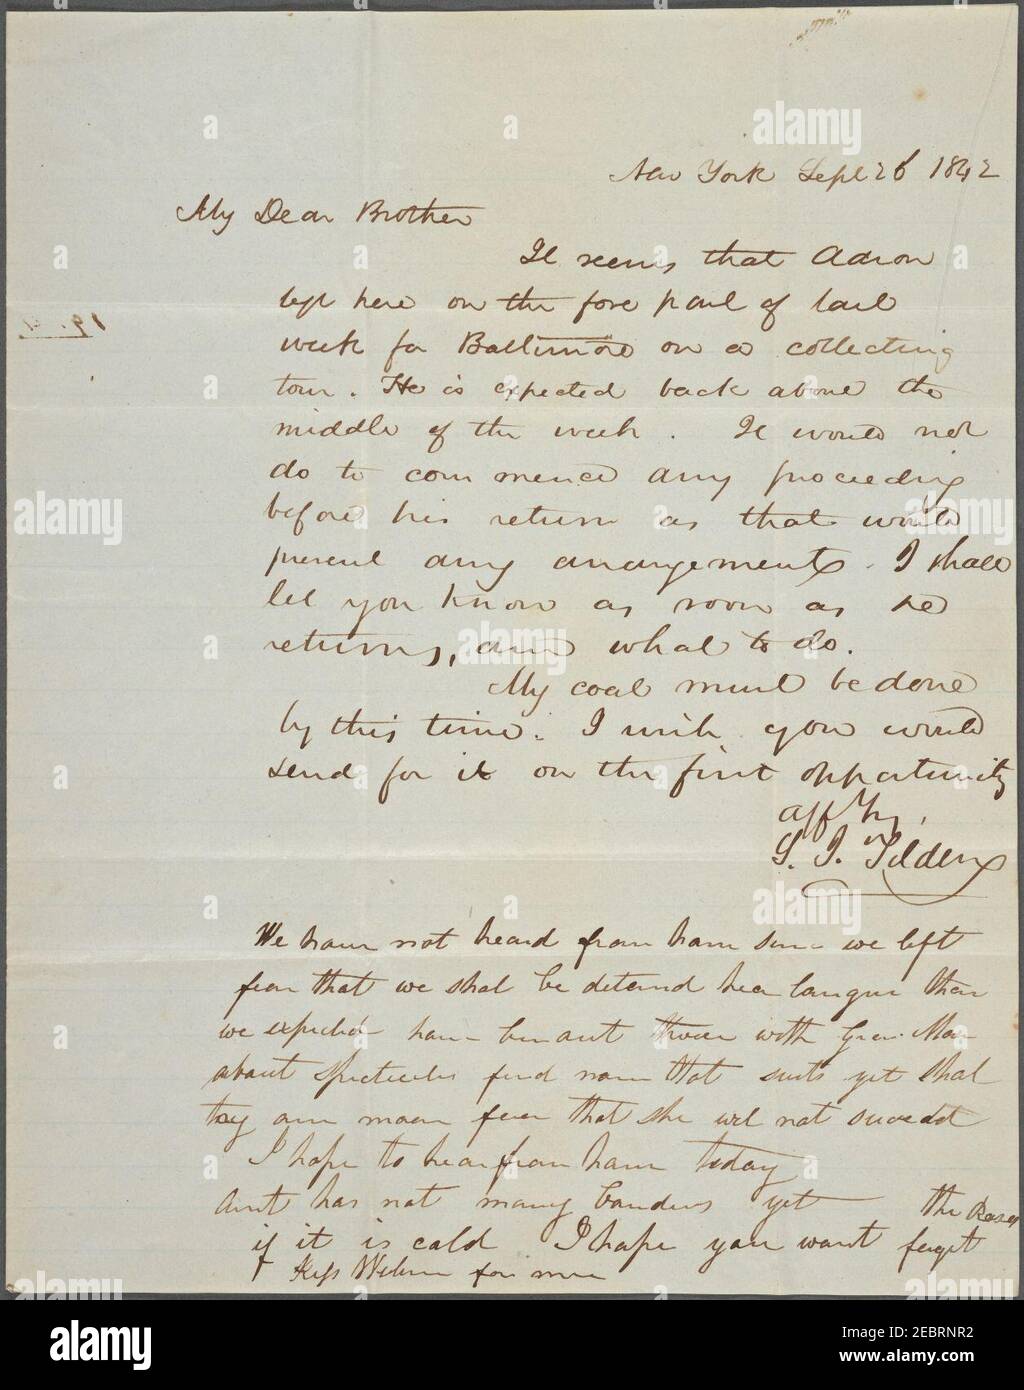 New York Sept 26 1842
My Dear Brother
It seems that Adron
left here on the fore part of last
week for Baltimore on a collecting
tour. He is expected back above the
middle of the week. It would not
do to commence any proceeding
before his return as that would
prevent any arrangements. I shall
let you know as soon as he
returns, and what to do.
My coat must be done
by this time. I wish you would
send for it on the first opportunity
Aff'ly,
S. J. Tilden
We have not heard from ham since we left
fear that we shal be detaind hea longue than
we expected have ben out twice with Gran Ma
about Specticles find nam that suts yet shal
try one moor fear that she wil not succed
I hope to hear from ham today
Aunt has not many borders yet the
if it is cold I hope you wont forget
Kiss for me
alamy
Image ID: 2EBRNR2
www.alamy.com